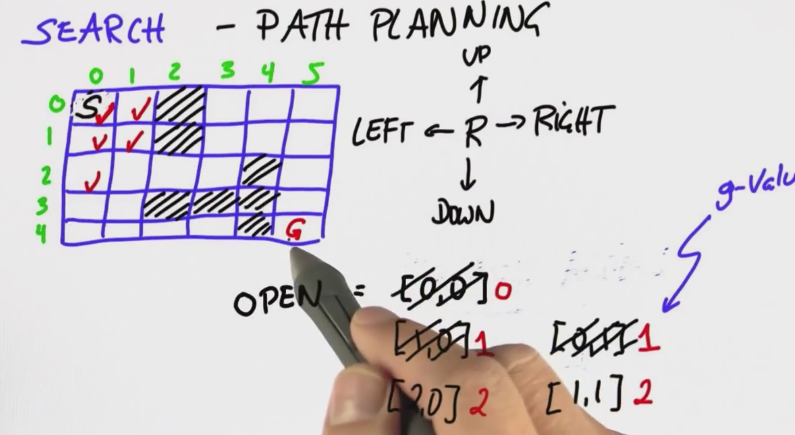 SEARCH - PATH PLANNING
0 1 2 3 4 5
0 S
1
2
3
4 G
UP
LEFT ← R → RIGHT
DOWN
g-Valu
OPEN = [0,0] 0
[1,0] 1 [0,1] 1
[2,0] 2 [1,1] 2